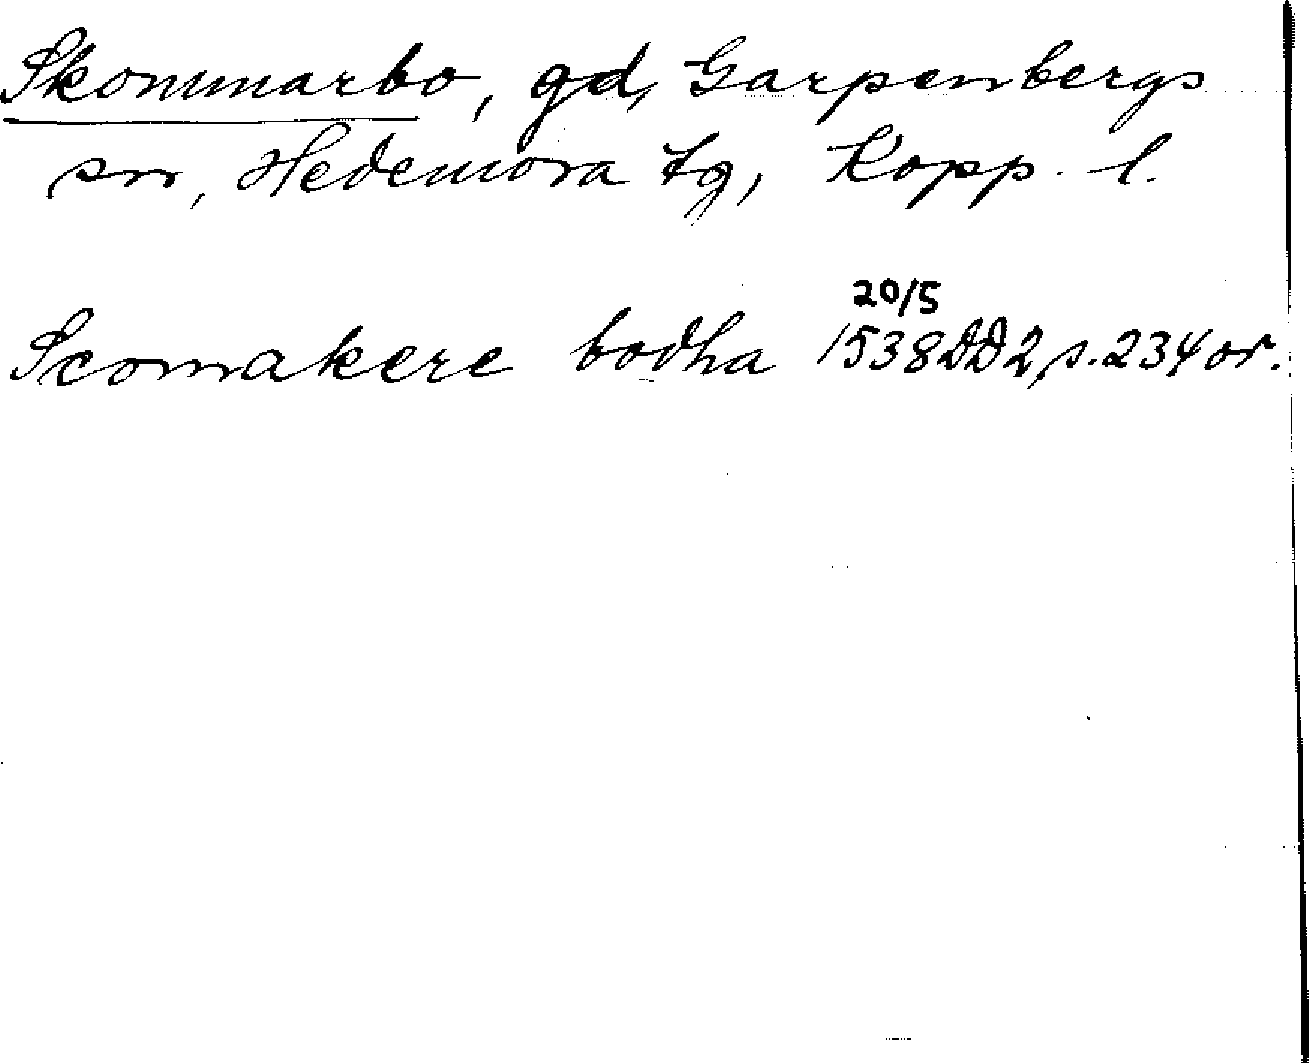 Skommarbo, gd, Garpenbergs
sn, Hedemora tg, Kopp. l.
20/5
Scomakere bodha 1538 DD2, s. 234 or.